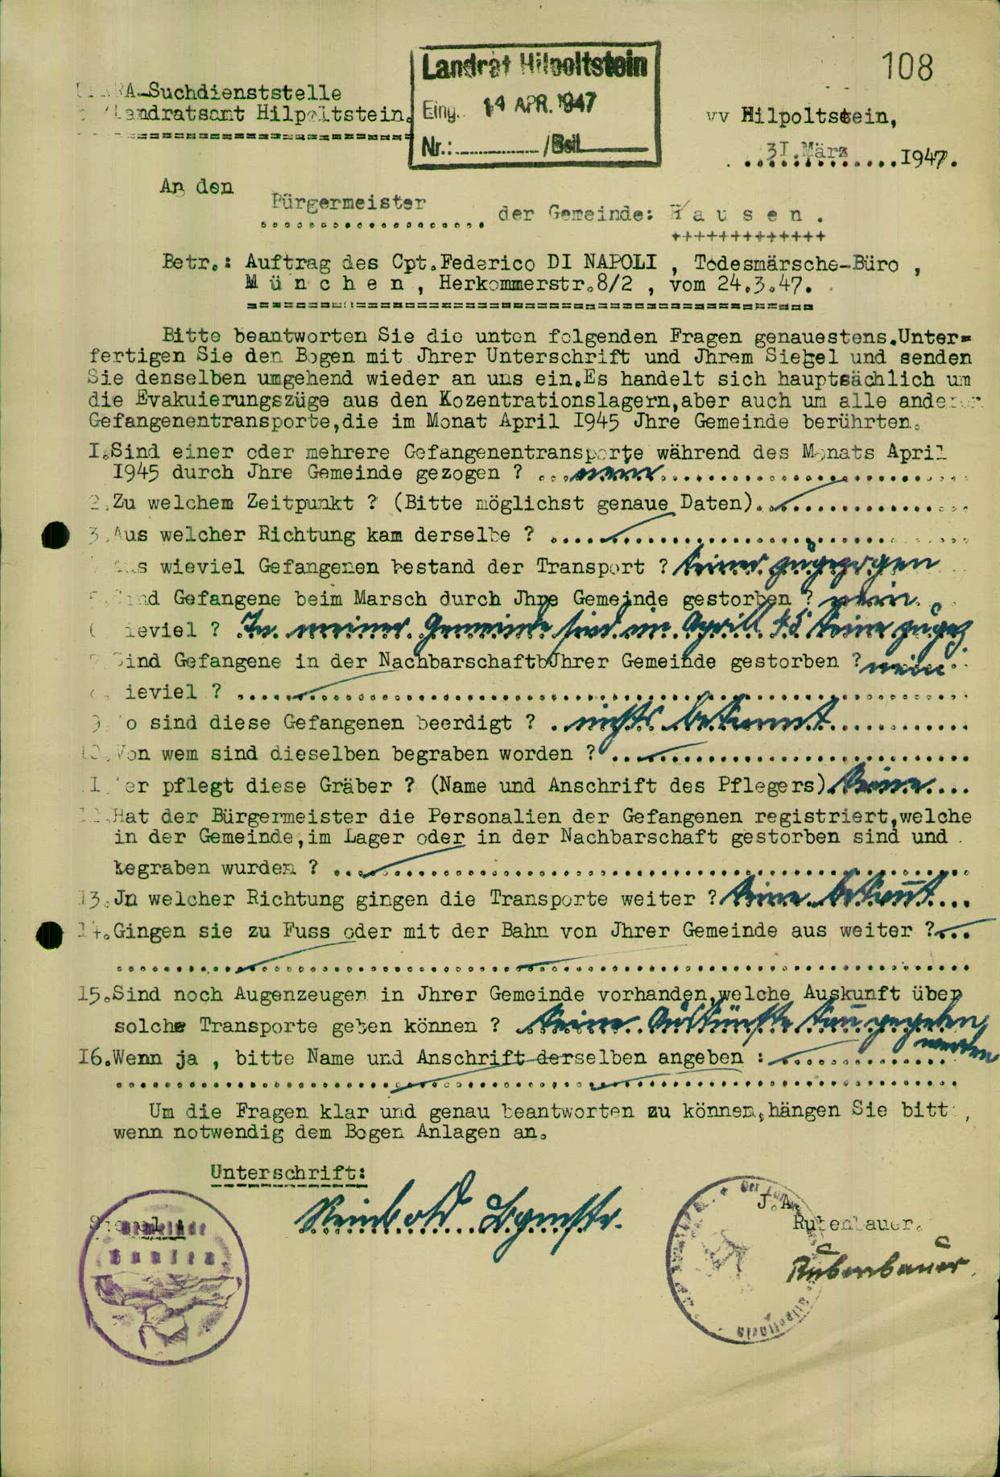 108
Landrat Hilpoltstein
Eing. 14 APR. 1947
Nr.: /Beil.
Suchdienststelle
Landratsamt Hilpoltstein.
Hilpoltstein,
31. März 1947.
An den
Bürgermeister der Gemeinde: Hausen.
+++++++++++++
Betr.: Auftrag des Cpt.Federico DI NAPOLI , Todesmärsche-Büro ,
München , Herkommerstr.8/2 , vom 24.3.47.
Bitte beantworten Sie die unten folgenden Fragen genauestens.Unter=
fertigen Sie den Bogen mit Jhrer Unterschrift und Jhrem Siegel und senden
Sie denselben umgehend wieder an uns ein.Es handelt sich hauptsächlich um
die Evakuierungszüge aus den Kozentrationslagern,aber auch um alle anderer
Gefangenentransporte,die im Monat April I945 Jhre Gemeinde berührten.
I.Sind einer oder mehrere Gefangenentransporte während des Monats April
I945 durch Jhre Gemeinde gezogen ? nein
2.Zu welchem Zeitpunkt ? (Bitte möglichst genaue Daten)
3.Aus welcher Richtung kam derselbe ?
wieviel Gefangenen bestand der Transport ? keiner zugezogen
Sind Gefangene beim Marsch durch Jhre Gemeinde gestorben ? nein.
ieviel ? In meiner Gemeinde sind im April 45 keine
Sind Gefangene in der Nachbarschaft Jhrer Gemeinde gestorben ? nein
ieviel ?
9 o sind diese Gefangenen beerdigt ? nichts bekannt
Von wem sind dieselben begraben worden ?
er pflegt diese Gräber ? (Name und Anschrift des Pflegers) Keine
Hat der Bürgermeister die Personalien der Gefangenen registriert,welche
in der Gemeinde,im Lager oder in der Nachbarschaft gestorben sind und
begraben wurden ?
13.Jn welcher Richtung gingen die Transporte weiter ? keine bekannt
14.Gingen sie zu Fuss oder mit der Bahn von Jhrer Gemeinde aus weiter ?
15.Sind noch Augenzeugen in Jhrer Gemeinde vorhanden,welche Auskunft über
solche Transporte geben können ? Keine Auskünfte kan gegeben
werden
I6.Wenn ja , bitte Name und Anschrift derselben angeben :
Um die Fragen klar und genau beantworten zu können,hängen Sie bitt ,
wenn notwendig dem Bogen Anlagen an.
Unterschrift:
Siegel :
Gemeinde
Hausen
Reinbold Bgmstr.
J.A.
Rubenbauer.
Rubenbauer